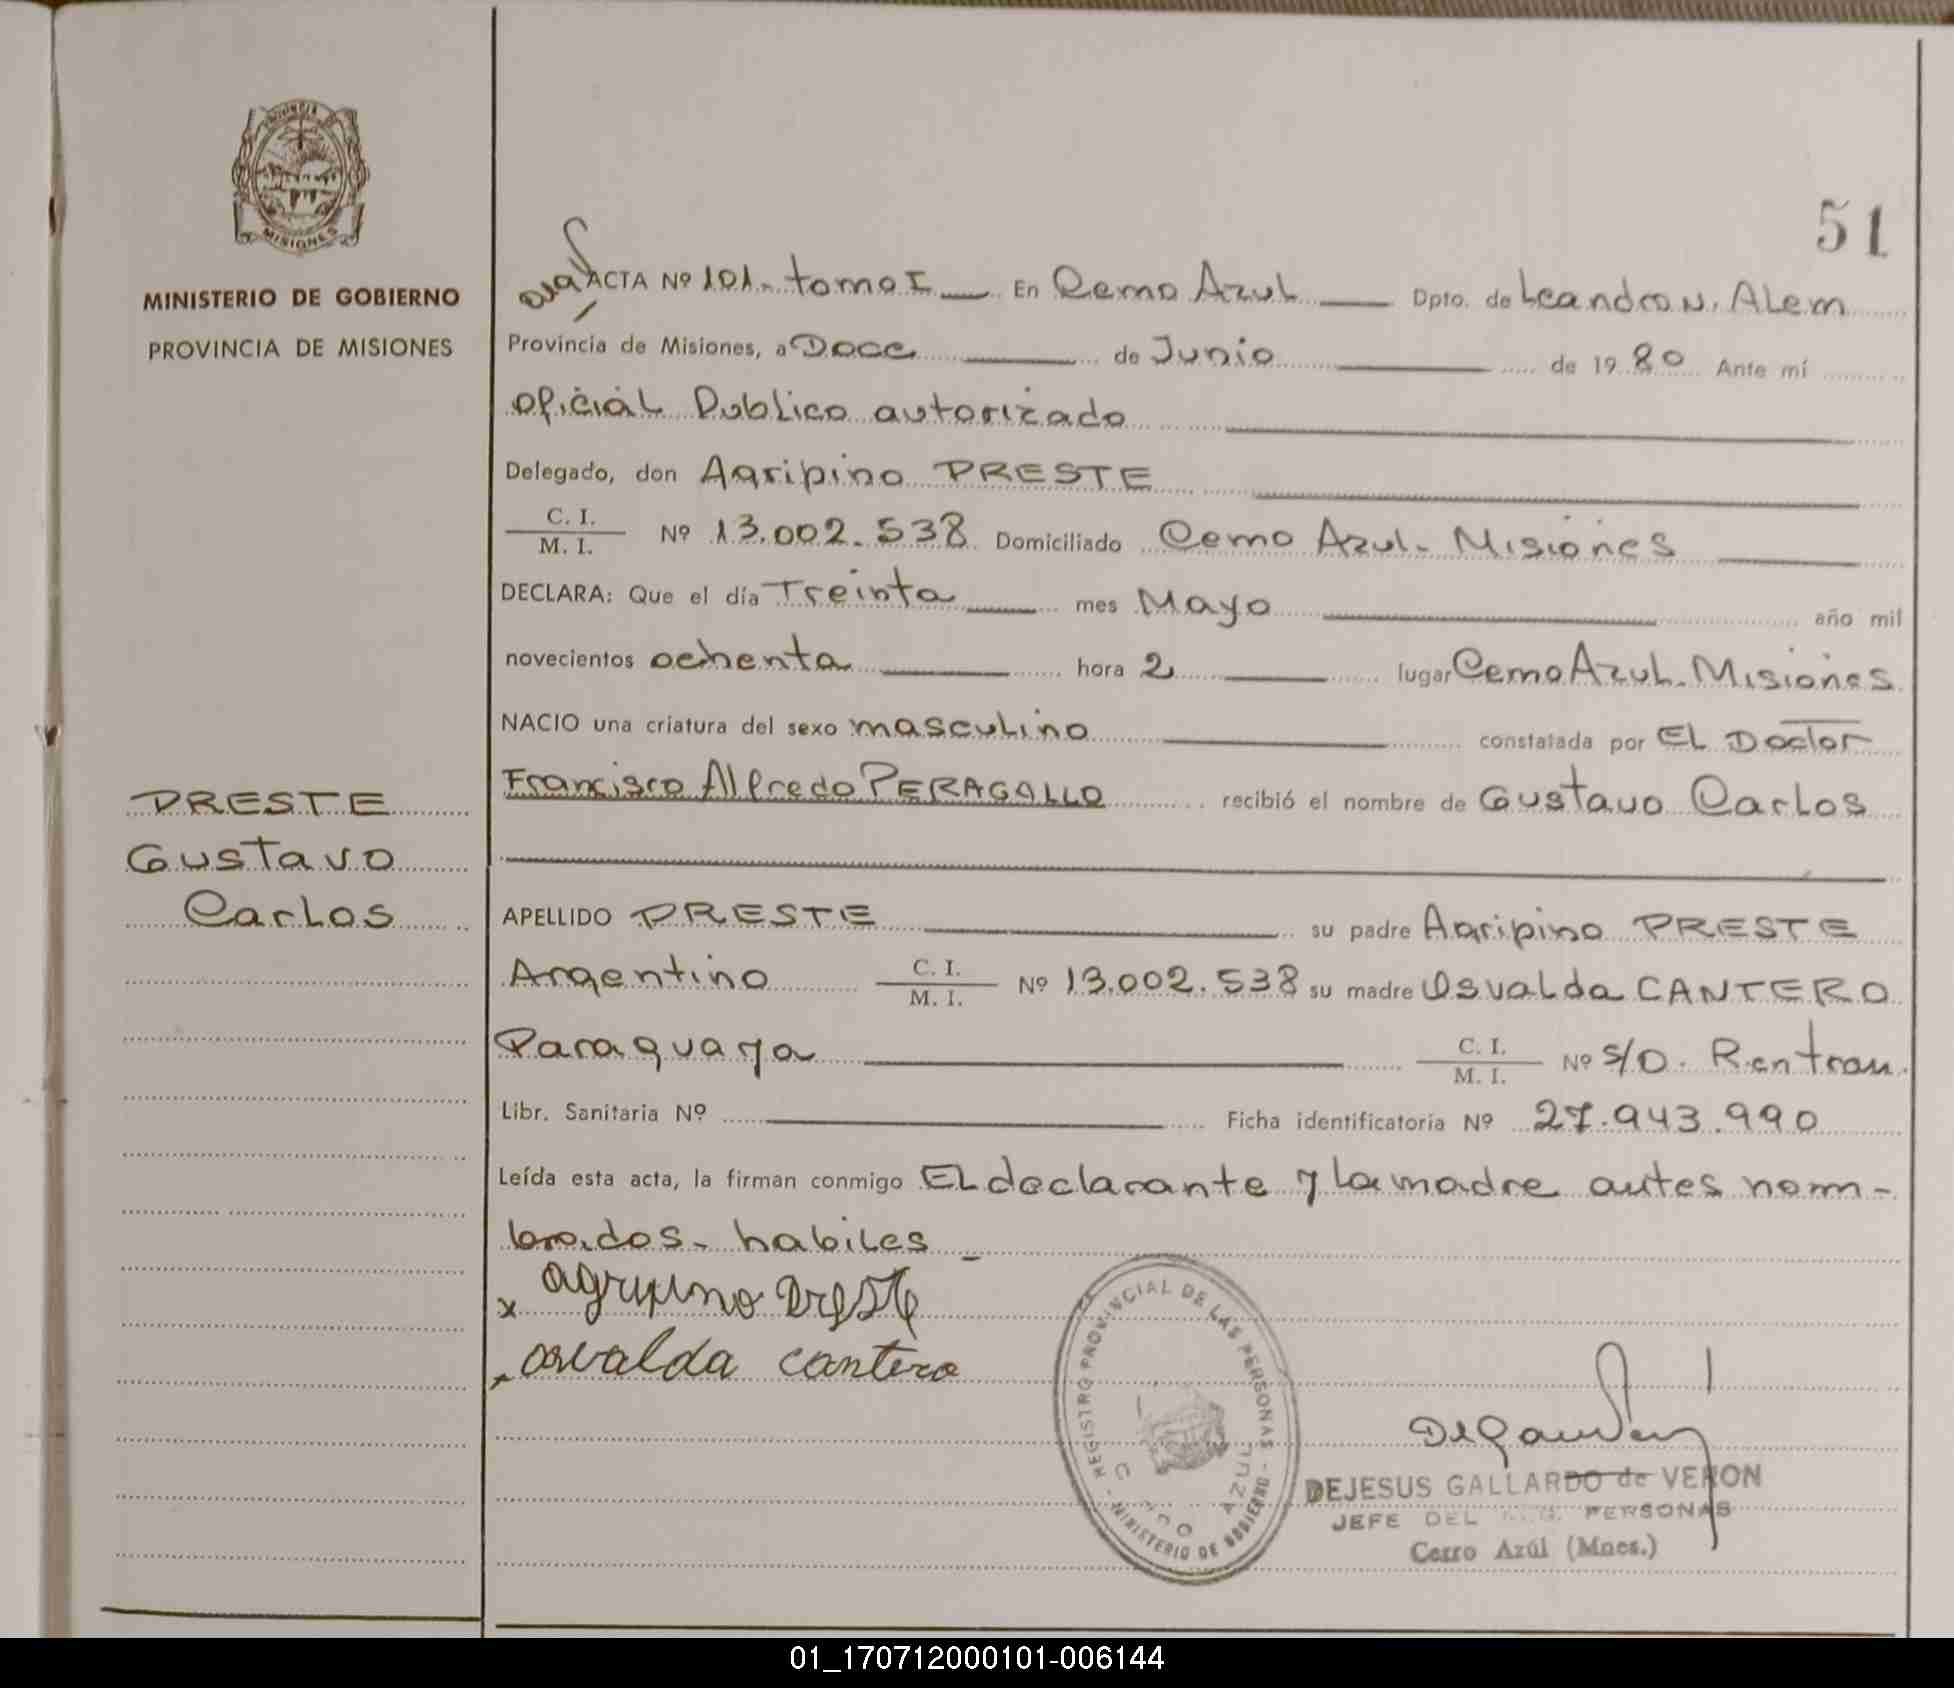 PROVINCIA
MISIONES
MINISTERIO DE GOBIERNO
PROVINCIA DE MISIONES
51
ACTA Nº 101. tomo I En Cerro Azul Dpto. de Leandro N. Alem
Provincia de Misiones, a Doce de Junio de 1980 Ante mí
oficial Publico autorizado
Delegado, don Agripino PRESTE
C. I.
M. I. Nº 13.002.538 Domiciliado Cerro Azul. Misiones
DECLARA: Que el día Treinta mes Mayo año mil
novecientos ochenta hora 2 lugar Cerro Azul. Misiones
NACIO una criatura del sexo masculino constatada por El Doctor
Francisco Alfredo PERAGALLO recibió el nombre de Gustavo Carlos
PRESTE
Gustavo
Carlos
APELLIDO PRESTE su padre Agripino PRESTE
Argentino C. I.
M. I. Nº 13.002.538 su madre Osvalda CANTERO
Paraguaya C. I.
M. I. Nº S/D. Rentran
Libr. Sanitaria Nº Ficha identificatoria Nº 27.943.990
Leída esta acta, la firman conmigo El declarante y la madre antes nom-
brados. habiles
x agripino Preste
x osvalda cantero
REGISTRO PROVINCIAL DE LAS PERSONAS - MINISTERIO DE GOBIERNO -
AZUL
DEJESUS GALLARDO de VERON
JEFE DEL PERSONAS
Cerro Azúl (Mnes.)
01_170712000101-006144